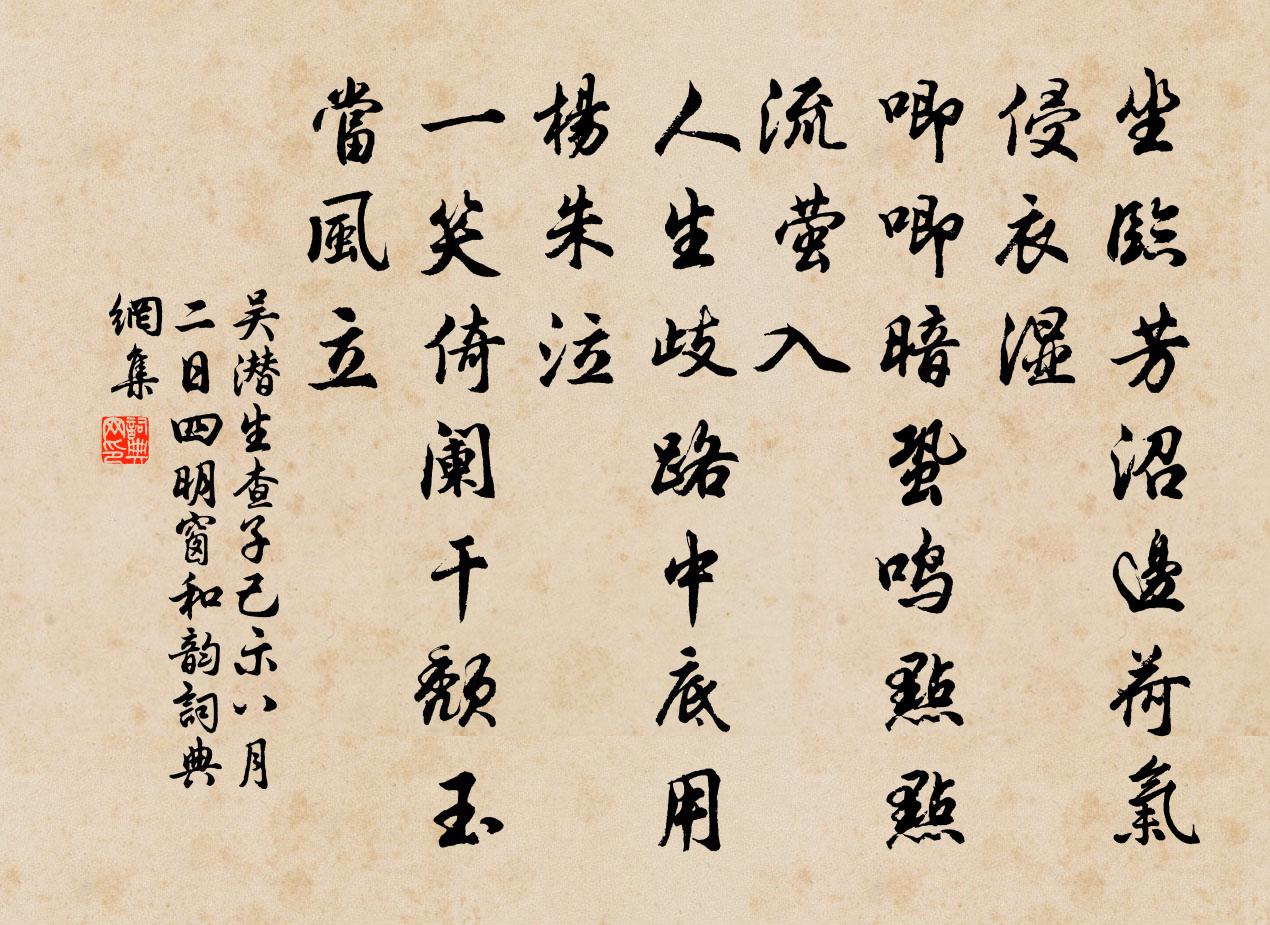 坐臨芳沼邊荷氣
侵衣濕
唧唧暗蛩鳴點點
流萤入
人生歧路中底用
楊朱泣
一笑倚阑干颓玉
當風立
吴潜生查子己示八月
二日四明窗和韵詞典
網集
詞典
网印